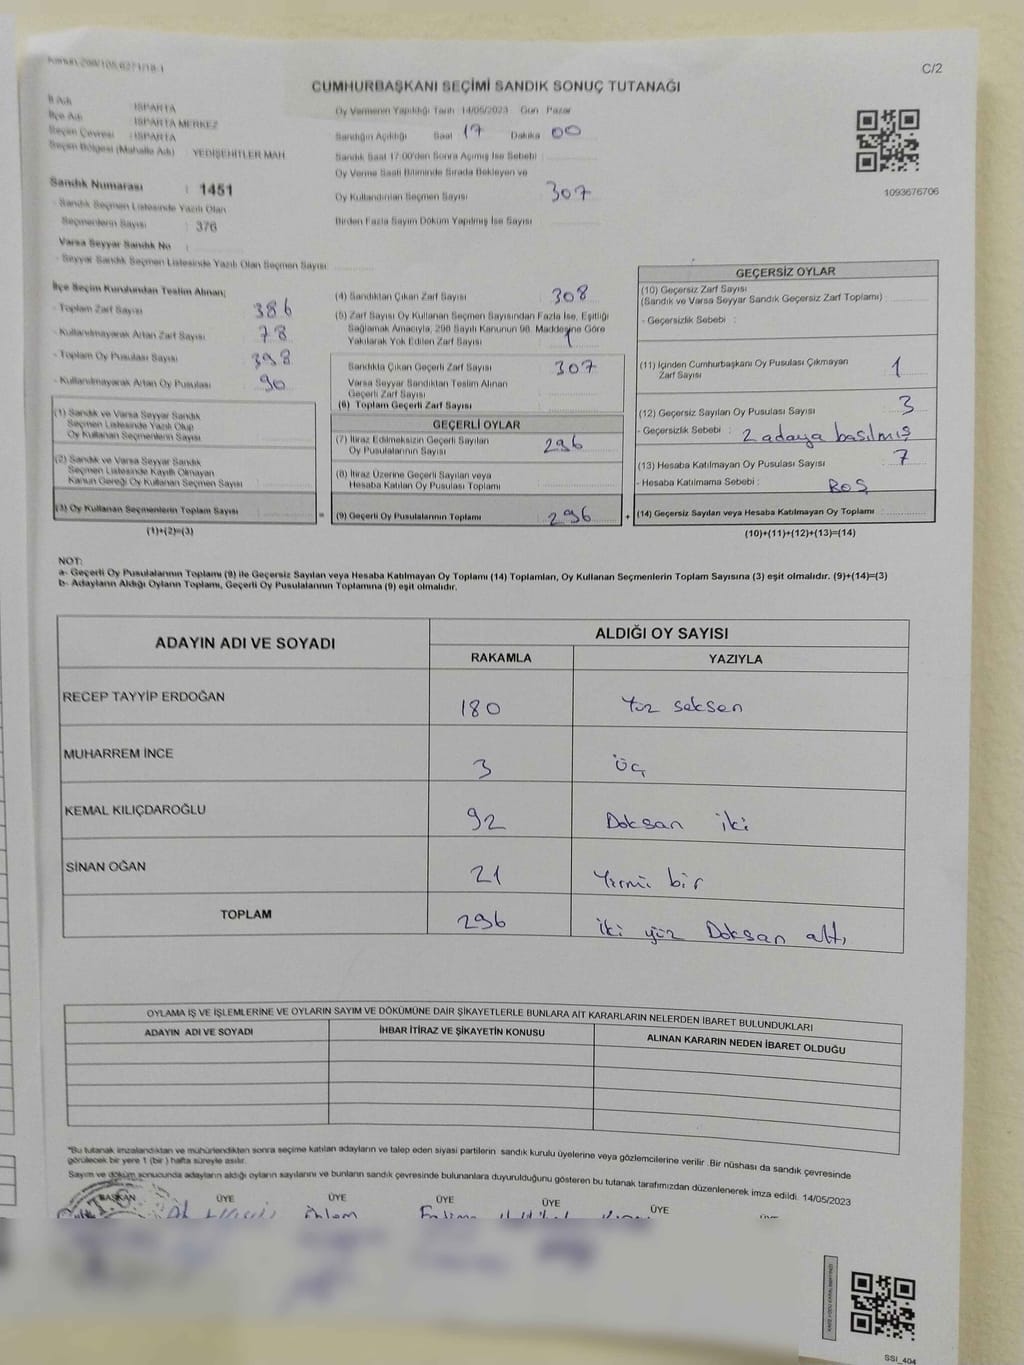 C/2
CUMHURBAŞKANI SEÇİMİ SANDIK SONUÇ TUTANAĞI
İl Adı : ISPARTA
İlçe Adı : ISPARTA MERKEZ
Seçim Çevresi : ISPARTA
Seçim Bölgesi (Mahalle Adı) : YEDİŞEHİTLER MAH
Sandık Numarası : 1451
- Sandık Seçmen Listesinde Yazılı Olan
Seçmenlerin Sayısı : 376
Varsa Seyyar Sandık No :
- Seyyar Sandık Seçmen Listesinde Yazılı Olan Seçmen Sayısı
Oy Vermenin Yapıldığı Tarih 14/05/2023 Gün Pazar
Sandığın Açıldığı Saat 17 Dakika 00
Sandık Saat 17:00'den Sonra Açmış İse Sebebi :
Oy Verme Saati Bitiminde Sırada Bekleyen ve
Oy Kullandırılan Seçmen Sayısı 307
Birden Fazla Sayım Döküm Yapılmış İse Sayısı
1093676706
İlçe Seçim Kurulundan Teslim Alınan;
- Toplam Zarf Sayısı 386
- Kullanılmayarak Artan Zarf Sayısı 78
- Toplam Oy Pusulası Sayısı 398
- Kullanılmayarak Artan Oy Pusulası 90
(1) Sandık ve Varsa Seyyar Sandık
Seçmen Listesinde Yazılı Olup
Oy Kullanan Seçmenlerin Sayısı
(2) Sandık ve Varsa Seyyar Sandık
Seçmen Listesinde Kayıtlı Olmayan
Kanun Gereği Oy Kullanan Seçmen Sayısı
(3) Oy Kullanan Seçmenlerin Toplam Sayısı
(1)+(2)=(3)
(4) Sandıktan Çıkan Zarf Sayısı 308
(5) Zarf Sayısı Oy Kullanan Seçmen Sayısından Fazla İse, Eşitliği
Sağlamak Amacıyla, 298 Sayılı Kanunun 98. Maddesine Göre
Yakılarak Yok Edilen Zarf Sayısı 1
Sandıkta Çıkan Geçerli Zarf Sayısı 307
Varsa Seyyar Sandıktan Teslim Alınan
Geçerli Zarf Sayısı
(6) Toplam Geçerli Zarf Sayısı
GEÇERLİ OYLAR
(7) İtiraz Edilmeksizin Geçerli Sayılan
Oy Pusulalarının Sayısı 296
(8) İtiraz Üzerine Geçerli Sayılan veya
Hesaba Katılan Oy Pusulası Toplamı
= (9) Geçerli Oy Pusulalarının Toplamı 296
GEÇERSİZ OYLAR
(10) Geçersiz Zarf Sayısı
(Sandık ve Varsa Seyyar Sandık Geçersiz Zarf Toplamı)
- Geçersizlik Sebebi :
(11) İçinden Cumhurbaşkanı Oy Pusulası Çıkmayan
Zarf Sayısı 1
(12) Geçersiz Sayılan Oy Pusulası Sayısı 3
- Geçersizlik Sebebi : 2 adaya basılmış
(13) Hesaba Katılmayan Oy Pusulası Sayısı 7
- Hesaba Katılmama Sebebi : BOŞ
+ (14) Geçersiz Sayılan veya Hesaba Katılmayan Oy Toplamı
(10)+(11)+(12)+(13)=(14)
NOT:
a- Geçerli Oy Pusulalarının Toplamı (9) ile Geçersiz Sayılan veya Hesaba Katılmayan Oy Toplamı (14) Toplamları, Oy Kullanan Seçmenlerin Toplam Sayısına (3) eşit olmalıdır. (9)+(14)=(3)
b- Adayların Aldığı Oyların Toplamı, Geçerli Oy Pusulalarının Toplamına (9) eşit olmalıdır.
ADAYIN ADI VE SOYADI ALDIĞI OY SAYISI
RAKAMLA YAZIYLA
RECEP TAYYİP ERDOĞAN 180 Yüz seksen
MUHARREM İNCE 3 üç
KEMAL KILIÇDAROĞLU 92 Doksan iki
SİNAN OĞAN 21 Yirmi bir
TOPLAM 296 iki yüz Doksan altı
OYLAMA İŞ VE İŞLEMLERİNE VE OYLARIN SAYIM VE DÖKÜMÜNE DAİR ŞİKAYETLERLE BUNLARA AİT KARARLARIN NELERDEN İBARET BULUNDUKLARI
ADAYIN ADI VE SOYADI İHBAR İTİRAZ VE ŞİKAYETİN KONUSU ALINAN KARARIN NEDEN İBARET OLDUĞU
*Bu tutanak imzalandıktan ve mühürlendikten sonra seçime katılan adayların ve talep eden siyasi partilerin sandık kurulu üyelerine veya gözlemcilerine verilir .Bir nüshası da sandık çevresinde
görülecek bir yere 1 (bir ) hafta süreyle asılır.
Sayım ve döküm sonucunda adayların aldığı oyların sayılarını ve bunların sandık çevresinde bulunanlara duyurulduğunu gösteren bu tutanak tarafımızdan düzenlenerek imza edildi. 14/05/2023
BAŞKAN ÜYE ÜYE ÜYE ÜYE ÜYE
SSI_404